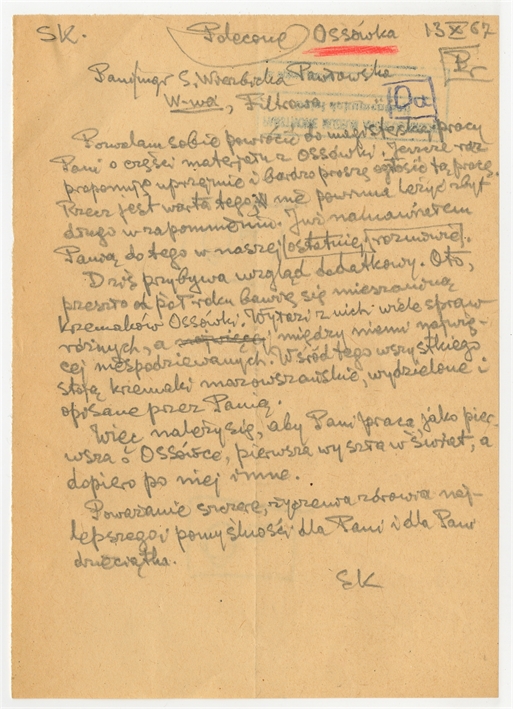 SK. Polecone Ossówka 13 X 67
Pr
Pani/mgr S. Wierzbicka Pawłowska
W-wa, Filtrowa Od
Pozwalam sobie powrócić do magisterskiej pracy
Pani o części materjału z Ossówki. Jeszcze raz
proponuję uprzejmie i bardzo proszę ogłosić tą pracę.
Rzecz jest warta tego i nie powinna leżeć zbyt
długo w zapomnieniu. Już namawiałem
Panią do tego w naszej ostatniej rozmowie.
Dziś przybywa wzgląd dodatkowy. Oto,
przeszło od pół roku bawię się mieszaniną
krzemaków Ossówki. Wyłazi z nich wiele spraw
różnych, a między niemi najwię-
cej niespodziewanych. Wśród tego wszystkiego
stoją krzemaki mazowszańskie, wydzielone i
opisane przez Panią.
Więc należy się, aby Pani praca, jako pier-
wsza o Ossówce, pierwsza wyszła w świat, a
dopiero po niej inne.
Poważanie szczere, życzenia zdrowia naj-
lepszego i pomyślności dla Pani i dla Pani
dzieciątka.
SK